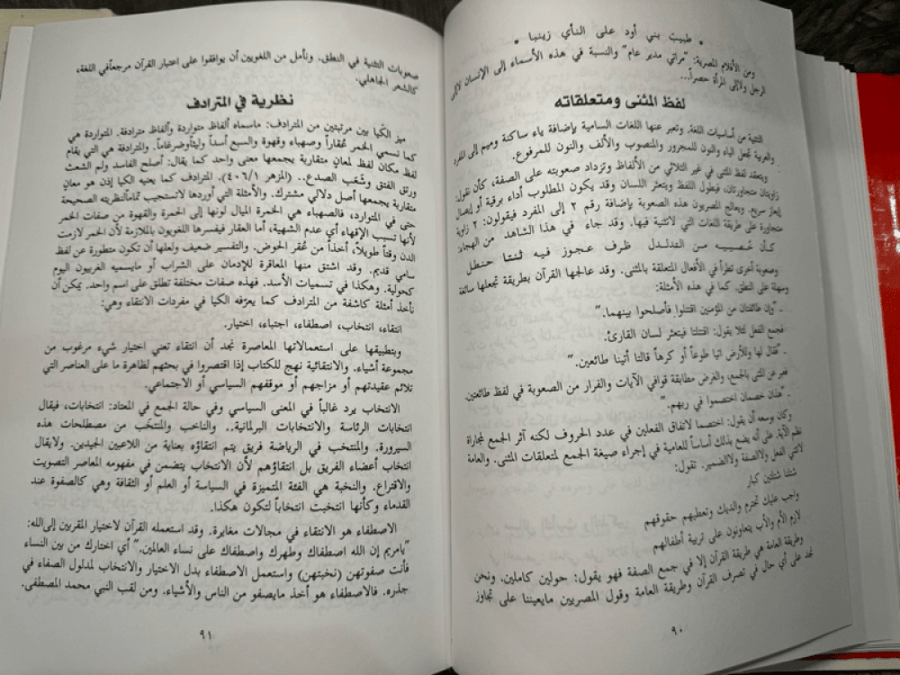 * طبيب بني أود على النأي زينبا *
ومن الأفلام المصرية: "مراتي مدير عام" والنسبة في هذه الأسماء إلى الإنسان لاإلى
الرجل ولاإلى المرأة حصراً...
لفظ المثنى ومتعلقاته
التثنية من أساسيات اللغة. وتعبر عنها اللغات السامية بإضافة ياء ساكنة وميم إلى المفرد
والعربية تجعل الياء والنون للمجرور والمنصوب والألف والنون للمرفوع.
ويتعقد لفظ المثنى في غير الثلاثي من الألفاظ وتزداد صعوبته على الصفة، كأن نقول:
زاويتان متجاورتان، فيطول اللفظ ويتعثر اللسان وقد يكون المطلوب أداء برقية أو إيصال
إيعاز سريع. ويعالج المصريون هذه الصعوبة بإضافة رقم ٢ إلى المفرد فيقولون: ٢ زاوية
متجاورة على طريقة اللغات التي لاتثنية فيها. وقد جاء في هذا الشاهد من الهجاء:
كأن خُصييه من التدلدل ظرف عجوز فيه ثنتا حنظل
وصعوبة أخرى تطرأ في الأفعال المتعلقة بالمثنى. وقد عالجها القرآن بطريقة تجعلها سائغة
وسهلة على النطق. كما في هذه الأمثلة:
ـ "وإن طائفتان من المؤمنين اقتتلوا فأصلحوا بينهما."
فجمع الفعل لئلا يقول: اقتتلتا فيتعثر لسان القارئ.
ـ "فقال لها وللأرض ائتيا طوعاً أو كرهاً قالتا أتينا طائعين."
فعبر عن المثنى بالجمع، والغرض مطابقة قوافي الآيات والفرار من الصعوبة في لفظ طائعتين
ـ "هذان خصمان اختصموا في ربهم."
وكان بوسعه أن يقول: اختصما لاتفاق الفعلين في عدد الحروف لكنه آثر الجمع لمجاراة
نظم الآية. على أنه يضع بذلك أساساً للعامية في إجراء صيغة الجمع لمتعلقات المثنى. والعامة
لاتثني الفعل ولاالصفة ولاالضمير. تقول:
شلنا شلتين كبار
واجب عليك تحترم والديك وتعطيهم حقوقهم
لازم الأم والأب يتعاونون على تربية أطفالهم
وطريقة العامة هي طريقة القرآن إلا في جمع الصفة فهو يقول: حولين كاملين. ونحن
نجد على أي حال في تصرف القرآن وطريقة العامة وقول المصريين مايعيننا على تجاوز
٩٠
صعوبات التثنية في النطق. ونأمل من اللغويين أن يوافقوا على اعتبار القرآن مرجعاًفي اللغة،
كالشعر الجاهلي.
نظرية في المترادف
ميز الكَيا بين مرتبتين من المترادف: ماسماه ألفاظ متواردة وألفاظ مترادفة. المتواردة هي
كما نسمي الخمر عُقاراً وصهباء وقهوة والسبع أسداً وليثاًوضرغاماً. والمترادفة هي التي يقام
لفظ مكان لفظ لمعانٍ متقاربة يجمعها معنى واحد كما يقال: أصلح الفاسد ولم الشعث
ورتق الفتق وشَعَب الصدع.. (المزهر ٤٠٦/١). المترادف كما يعنيه الكيا إذن هو معانٍ
متقاربة يجمعها أصل دلالي مشترك. والأمثلة التي أوردها لاتستجيب تماماًلنظريته الصحيحة
حتى في المتوارد، فالصهباء هي الخمرة الميال لونها إلى الحمرة والقهوة من صفات الخمر
لأنها تسبب الإقهاء أي عدم الشهية، أما العقار فيفسرها اللغويون بالملازمة لأن الخمر لازمت
الدن وقتاً طويلاً، أخذاً من عُقر الحوض. والتفسير ضعيف ولعلها أن تكون متطورة عن لفظ
سامي قديم. وقد اشتق منها المعاقرة للإدمان على الشراب أو مايسميه الغربيون اليوم
كحولية. وهكذا في تسميات الأسد. فهذه صفات مختلفة تطلق على اسم واحد. يمكن أن
نأخذ أمثلة كاشفة من المترادف كما يعرّفه الكيا في مفردات الانتقاء وهي:
انتقاء، انتخاب، اصطفاء، اجتباء، اختيار.
وبتطبيقها على استعمالاتها المعاصرة نجد أن انتقاء تعني اختيار شيء مرغوب من
مجموعة أشياء. والانتقائية نهج للكتاب إذا اقتصروا في بحثهم لظاهرة ما على العناصر التي
تلائم عقيدتهم أو مزاجهم أو موقفهم السياسي أو الاجتماعي.
الانتخاب يرد غالباً في المعنى السياسي وفي حالة الجمع في المعتاد: انتخابات، فيقال
انتخابات الرئاسة والانتخابات البرلمانية.. والناخب والمنتخَب من مصطلحات هذه
السيرورة. والمنتخب في الرياضة فريق يتم انتقاؤه بعناية من اللاعبين الجيدين. ولايقال
انتخاب أعضاء الفريق بل انتقاؤهم لأن الانتخاب يتضمن في مفهومه المعاصر التصويت
والاقتراع. والنخبة هي الفئة المتميزة في السياسة أو العلم أو الثقافة وهي كالصفوة عند
القدماء وكأنها انتخبت انتخاباً لتكون هكذا.
الاصطفاء هو الانتقاء في مجالات مغايرة. وقد استعمله القرآن لاختيار المقربين إلى‌الله:
"يامريم إن الله اصطفاك وطهرك واصطفاك على نساء العالمين." أي اختارك من بين النساء
فأنت صفوتهن (نخبتهن) واستعمل الاصطفاء بدل الاختيار والانتخاب لمدلول الصفاء في
جذره. فالاصطفاء هو أخذ مايصفو من الناس والأشياء. ومن لقب النبي محمد المصطفى.
٩١